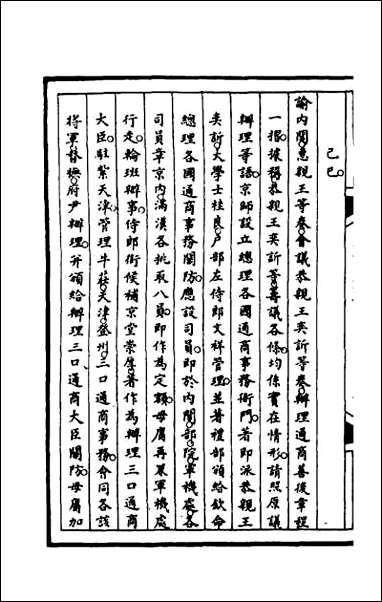 己巳
諭內閣惠親王等奏會議恭親王奕訢等奏辦理通商善後章程
一摺據稱恭親王奕訢等籌議各條均係實在情形請照原議
辦理等語京師設立總理各國通商事務衙門著即派恭親王
奕訢大學士桂良戶部左侍郎文祥管理並著禮部頒給欽命
總理各國通商事務關防應設司員即於內閣部院軍機處各
司員章京內滿漢各挑取八員即作為定額毋庸再兼軍機處
行走輪班辦事侍郎銜候補京堂崇厚著作為辦理三口通商
大臣駐紮天津管理牛莊天津登州三口通商事務會同各該
將軍督撫府尹辦理並頒給辦理三口通商大臣關防毋庸加